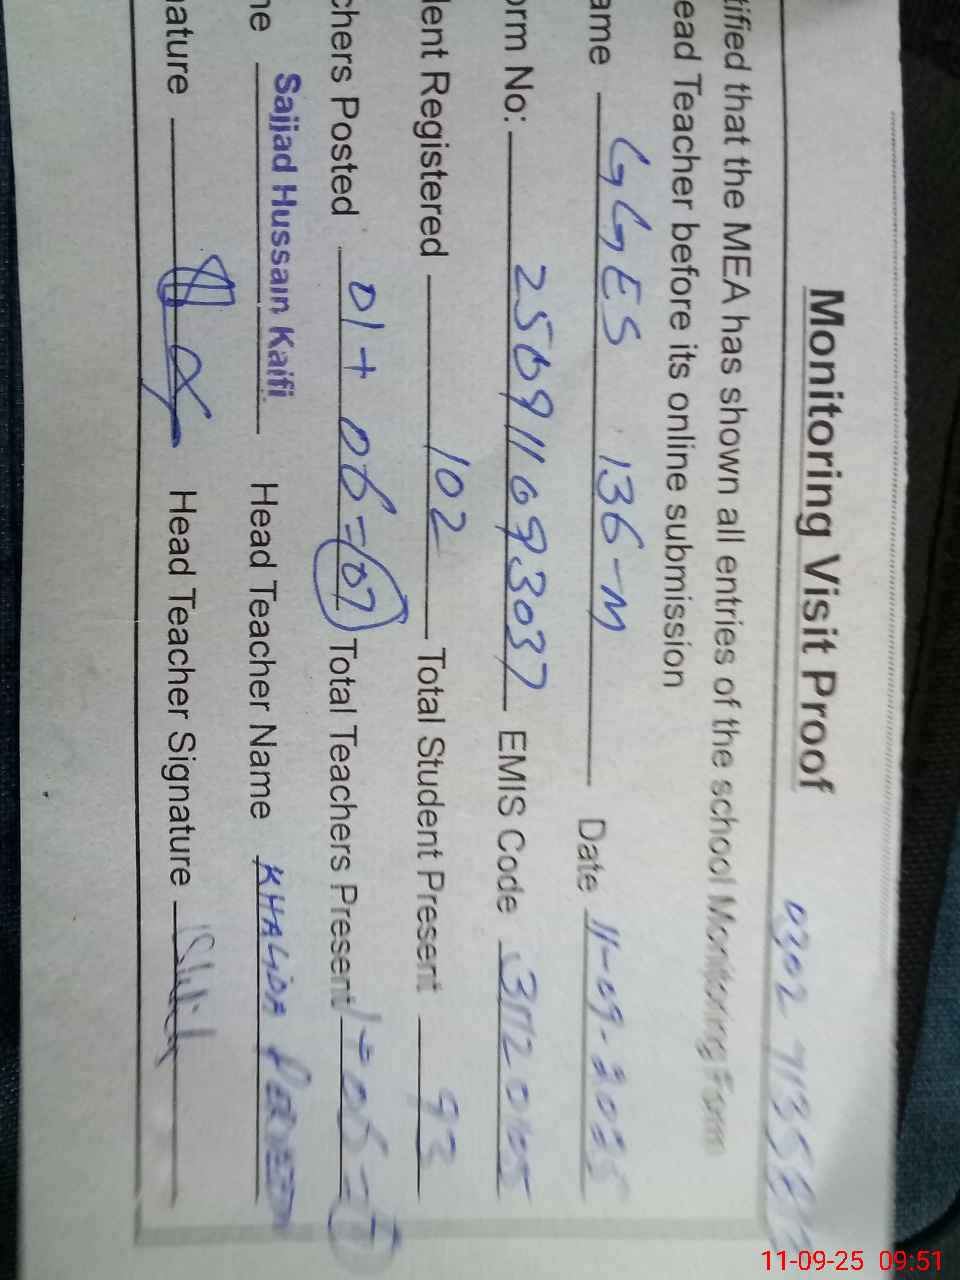 Monitoring Visit Proof
tified that the MEA has shown all entries of the school Monitoring Form
ead Teacher before its online submission
ame GGES 136-M Date 11-09-2025
orm No: 250911093037 EMIS Code
lent Registered 102 Total Student Present 93
chers Posted 01+06=07 Total Teachers Present 1+06=7
ne Sajjad Hussain Kaifi Head Teacher Name KHALIDA
nature Head Teacher Signature
11-09-25 09:51